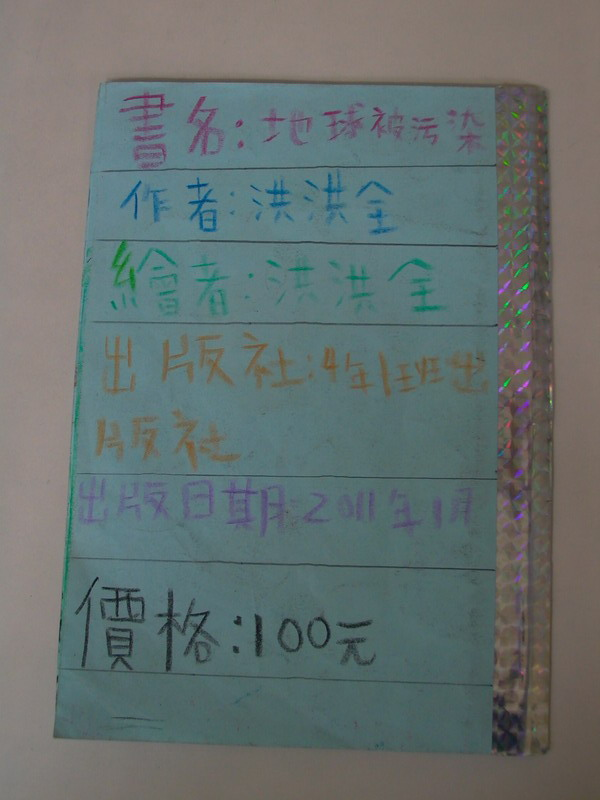 書名:地球被污染
作者:洪洪全
繪者:洪洪全
出版社:4年1班出
版社
出版日期:2011年1月
價格:100元